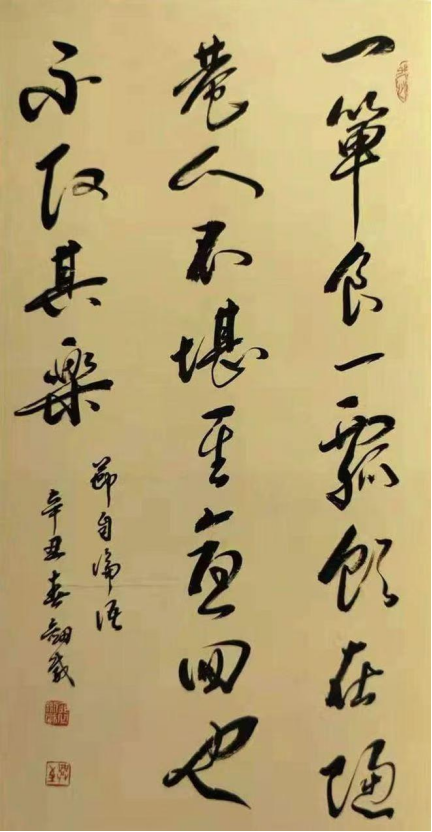 一簞食一瓢飲在陋
巷人不堪其憂回也
不改其樂
節自論語
辛丑春